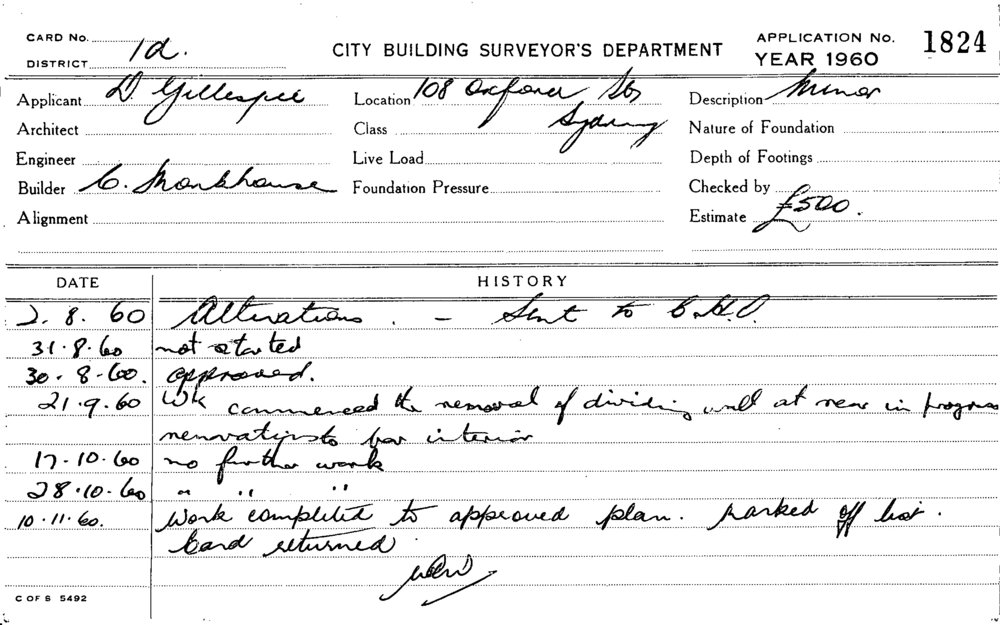 CARD No.
DISTRICT 1d.
CITY BUILDING SURVEYOR'S DEPARTMENT
APPLICATION No. 1824
YEAR 1960
Applicant D. Gillespie
Location 108 Oxford St, Sydney
Description Minor
Architect
Class
Nature of Foundation
Engineer
Live Load
Depth of Footings
Builder C. Monkhouse
Foundation Pressure
Checked by
Alignment
Estimate £500.
DATE HISTORY
2.8.60 Alterations. - Sent to C.H.O.
31.8.60 not started
30.8.60. approved.
21.9.60 Wk commenced the removal of dividing wall at rear in progress
renovations to bar interior
17.10.60 no further work
28.10.60 " " "
10.11.60. Work completed to approved plan. Marked off list.
Card returned
C OF S 5492